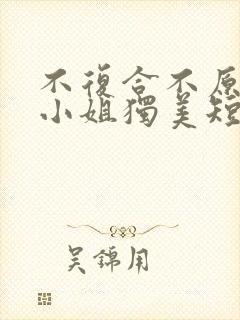 不復合不原
小姐獨美短
吳錦用